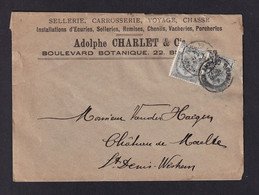 SELLERIE, CARROSSERIE, VOYAGE, CHASSE
Installations d'Écuries, Selleries, Remises, Chenils, Vacheries, Porcheries
Adolphe CHARLET & Cie
BOULEVARD BOTANIQUE, 22
Monsieur Van der Haegen
Château de
St Denis-Westrem